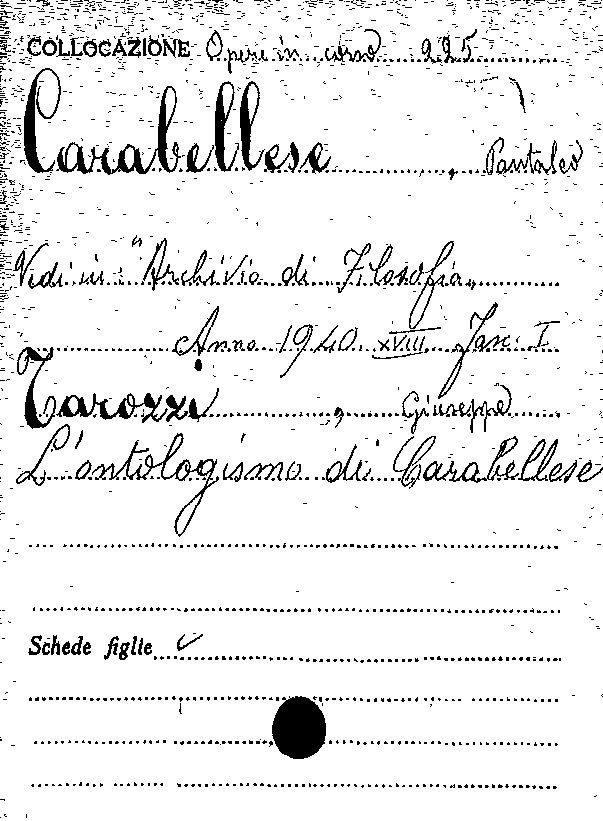 COLLOCAZIONE Opere in corso 225
Carabellese, Pantaleo
Vedi in: "Archivio di Filosofia"
Anno 1940 XVIII Fasc. I
Tarozzi, Giuseppe
L'ontologismo di Carabellese
Schede figlie